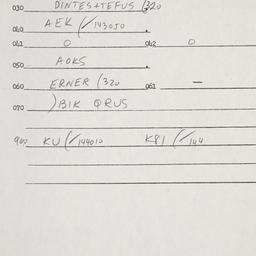 030 DINTES+TEFUS (320
040 AEK (/143050
041 0 042 0
050 AOKS
060 ERNER (320 061 —
070 )BIK QRUS
900 KU (/144010 K81 (/144